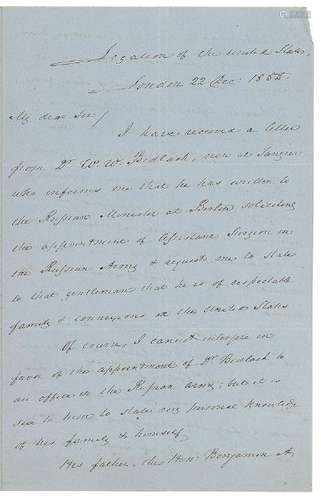 Legation of the United States,
London 22 Dec. 1855.
My dear Sir/
I have received a letter
from Dr W. W. Bidlack, now at
who informs me that he has written to
the Russian Minister at Berlin soliciting
the appointment of Assistant Surgeon in
the Russian Army & requests me to state
to that gentleman that he is of respectable
family & connexions in the United States
Of course, I cannot interfere in
favor of the appointment of Dr Bidlack to
an office in the Russian army; but it is
due to him to state my personal knowledge
of his family & himself.
His father, the Hon: Benjamin A.